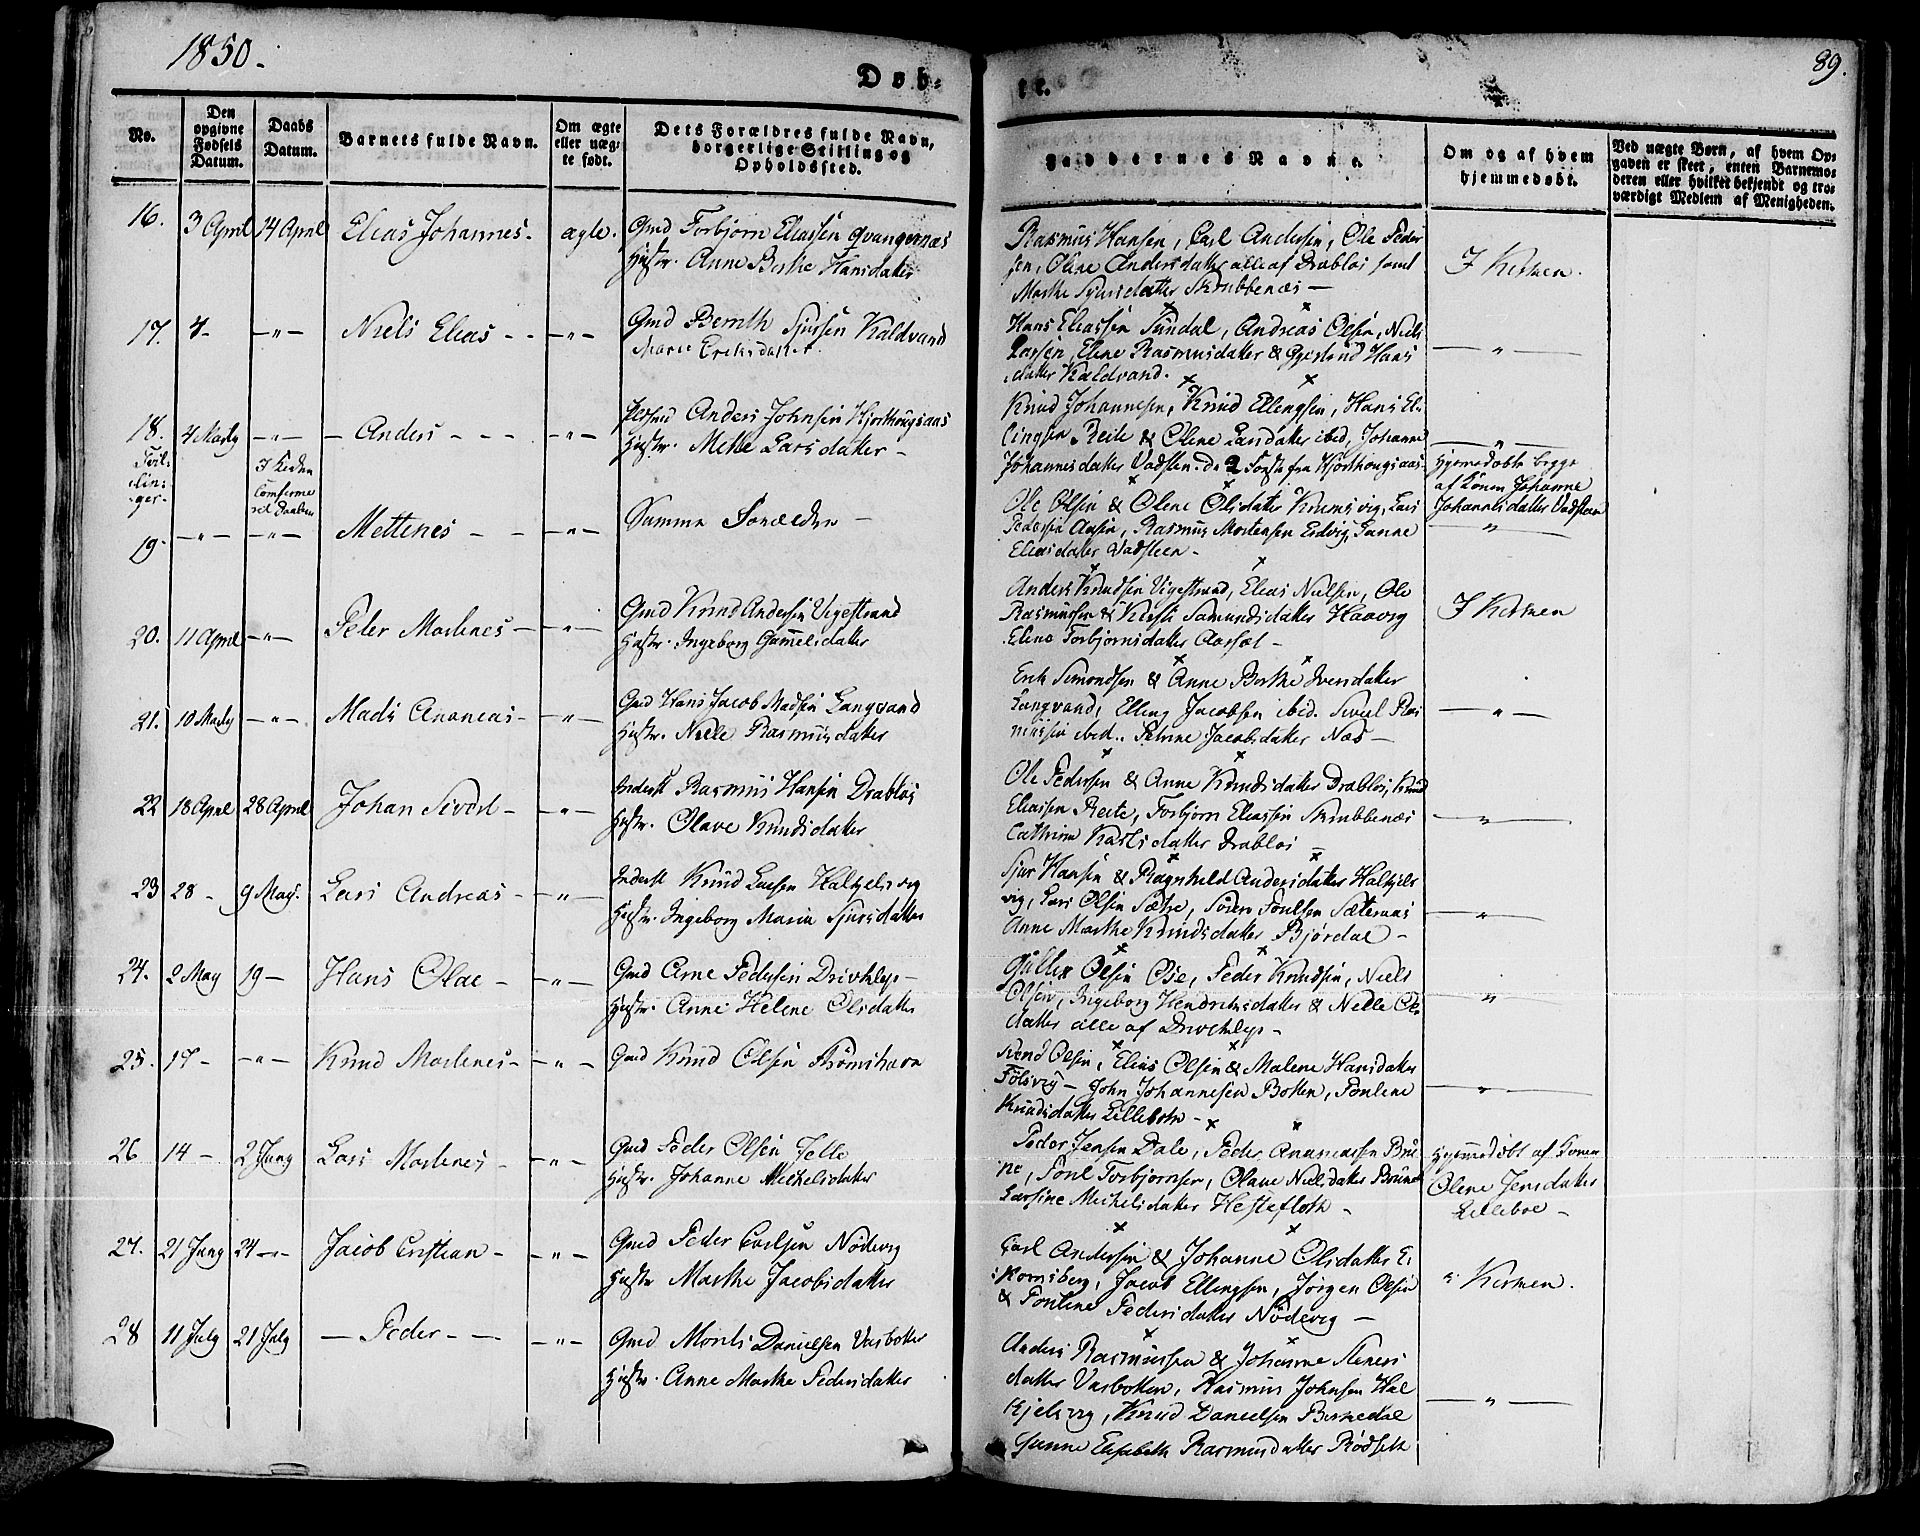 1850.
89.
Døb-
te.
No.
Den opgivne Fødsels Datum.
Daabs Datum.
Barnets fulde Navn.
Om ægte eller uægte født.
Dets Forældres fulde Navn, borgerlige Stilling og Opholdssted.
Faddernes Navne.
Om og af hvem hjemmedøbt.
Ved uægte Børn, af hvem Opgaven er skeet, enten Barnemoderen eller hvilket bekjendt og troværdigt Medlem af Menigheden.
16. 3 April 14 April Elias Johannes. ægte. Gmd Torbjørn Eliassen Qvangernæs
Hustr. Anne Berthe Hansdatter
Rasmus Hansen, Carl Andersen, Ole Peder
sen, Oline Andersdatter alle af Drabløs samt
Marthe Sjursdatter Skrubbenæs —
I Kirken.
17. 4 - — " — Niels Elias - - — " — Gmd Bernth Sjursen Kaldvand
Marie Eriksdatter.
Hans Eliassen Sundal, Andreas Olsen, Niels
Larsen, Elene Rasmusdatter & Gjertrud Hans
datter Kaldvand.
— " —
18. 4 Marty — " — - Anders - - - — " — Anders Johnsen Hjorthougsaas
Hustr. Mette Larsdatter -
Tvil-
lin-
ger.
Knud Johannesen, Knud Ellingsen, Hans El-
lingsen Reite & Olene Larsdatter ibid, Johanne
Johannesdatter Vadsten. De 2 første fra Hjorthougsaas
— " —
Hjemmedøbte begge
af Konen Johanne
Johannesdatter Vadsteen
19. — " — — " — Mettenes - - — " — Samme Forældre —
Ole Olsen & Olene Olsdatter Krumsvig, Lars
Pedersen Aasen, Rasmus Mortensen Eidvig, Hanne
Eliasdatter Vadsteen -
"
20. 11 April — " — Peter Martines - — " — Gmd Knud Andersen Vigestrand
Hustr. Ingeborg Gammelsdatter
Anders Knudsen Vigestrand, Elias Nielsen, Ole
Rasmussen & Kirsti Samundsdatter Haavig
Elene Torbjørnsdatter Aarsæt -
I Kirken
21. 10 Marty — " — Mads Andreas - — " — Gmd Hans Jacob Madsen Langvand
Hustr. Nille Rasmusdatter
Erik Simondsen & Anne Berthe Iversdatter
Langvand, Elling Jacobsen ibid. Sivert Ras
mussen ibid., Petrine Jacobsdatter Næs —
— " —
22 18 April 28 April Johan Sivert - — " — Inderst Rasmus Hansen Drabløs
Hustr. Olave Knudsdatter
Ole Pedersen & Anne Knudsdatter Drabløs, Knud
Eliassen Reite, Torbjørn Eliassen Skrubbenæs
Cathrine Karlsdatter Drabløs —
— " —
23 28 - 9 May. Lars Andreas - — " — Inderst Knud Larsen Halkjelsvig
Hustr. Ingeborg Maria Sjursdatter
Sjur Hansen & Ragnhild Andersdatter Halkjels
vig, Lars Olsen Sætre, Søren Poulsen Sæternæs
Anne Marthe Knudsdatter Bjørdal -
— " —
24. 2 May 19 — Hans Olae - — " — Gmd Arne Pedersen Drivklep -
Hustr. Anne Helene Olsdatter
Olsen Ose, Peder Knudsen, Niels
Olsen, Ingeborg Hendriksdatter & Nille Ols
datter alle af Drivklep -
"
25. 17 - — " — Knud Martines - — " — Gmd Knud Olsen Strømshavn
Svend Olsen, Elias Olsen & Malene Hansdatter
Følsvig — John Johannesen Botten, Pouline
Knudsdatter Lillebotn -
— " —
26 14 - 2 Juny Lars Martines - — " — Gmd Peder Olsen Jelle
Hustr. Johanne Michelsdatter
Peder Jensen Dale, Peder Andreassen Bru
ne, Poul Torbjørnsen, Olave Nielsdatter Brune
Larsine Michelsdatter Hesteflot -
Hjemmedøbt af Konen
Olene Jensdatter
Lilleboe -
27. 21 Juny 24 - " - Jacob Cristian - — " — Gmd Peder Carlsen Nødevig
Hustr Marthe Jacobsdatter
Carl Andersen & Johanne Olsdatter E-
Kornsberg, Jacob Ellingsen, Jørgen Olsen
& Pouline Pedersdatter Nødevig —
i Kirken.
28 11 July 21 July — Peder - — — " — Gmd Morits Danielsen Vasbotten
Hustr. Anne Marthe Pedersdatter
Anders Rasmussen & Johanne Steners
datter Vasbotten, Rasmus Johnsen Hal
kjelsvig, Knud Danielsen Birkedal
Hanne Elisabeth Rasmusdatter Rødseth
— " —